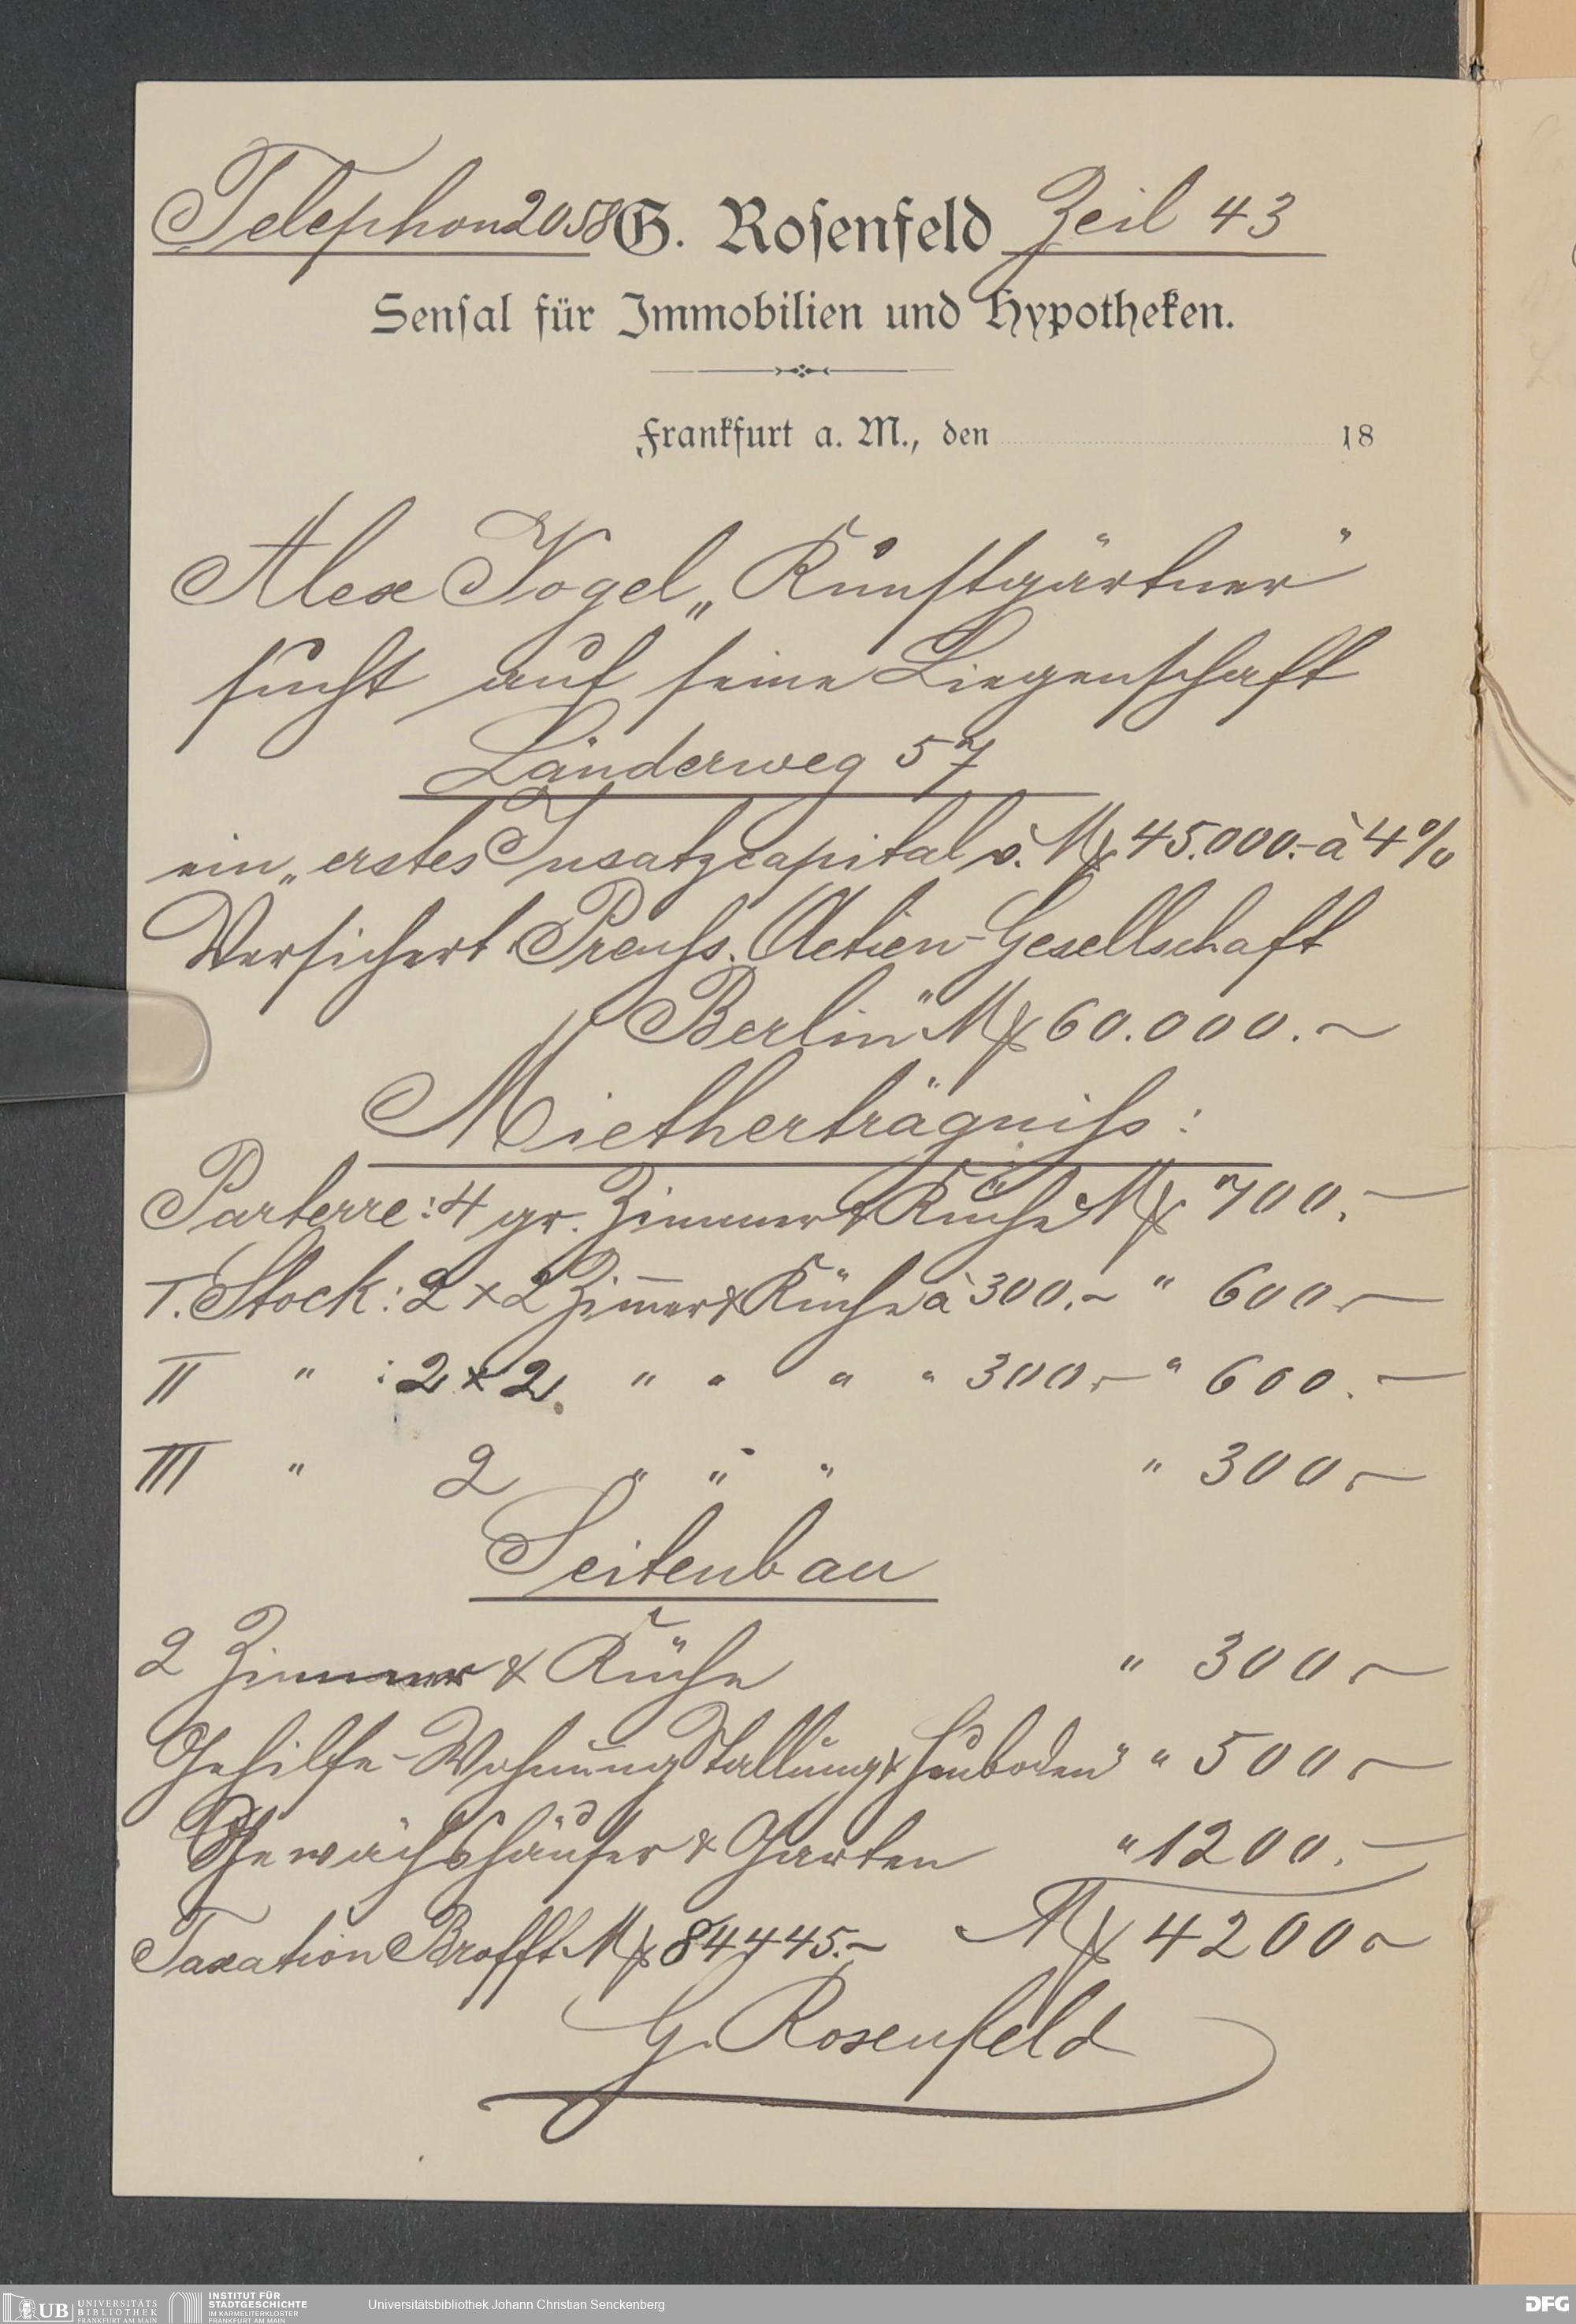 Telephon 2058 G. Rosenfeld Zeil 43
Sensal für Immobilien und Hypotheken.
Frankfurt a. M., den 18
Alex Vogel „Kunstgärtner"
sucht auf seine Liegenschaft
Länderweg 57
ein „erstes Insatzcapital v. Mk 45.000.- à 4%
Versichert Preuss. Actien-Gesellschaft
„Berlin" Mk 60.000.-
Mietherträgniss:
Parterre: 4 gr. Zimmer & Küche Mk 700.-
I. Stock: 2 x 2 Zimer & Küche à 300.- " 600.-
II " : 2 x 2 " " " " 300.- " 600.-
III " 2 " " " " 300.-
Seitenbau
2 Zimmer & Küche " 300.-
Gehilfe-Wohnung Stallung & Heuboden " 500.-
Gewächshäuser & Garten " 1200.-
Taxation Brofft Mk 84445.- Mk 4200.-
G. Rosenfeld
UB UNIVERSITÄTS BIBLIOTHEK FRANKFURT AM MAIN
INSTITUT FÜR STADTGESCHICHTE IM KARMELITERKLOSTER FRANKFURT AM MAIN
Universitätsbibliothek Johann Christian Senckenberg
DFG